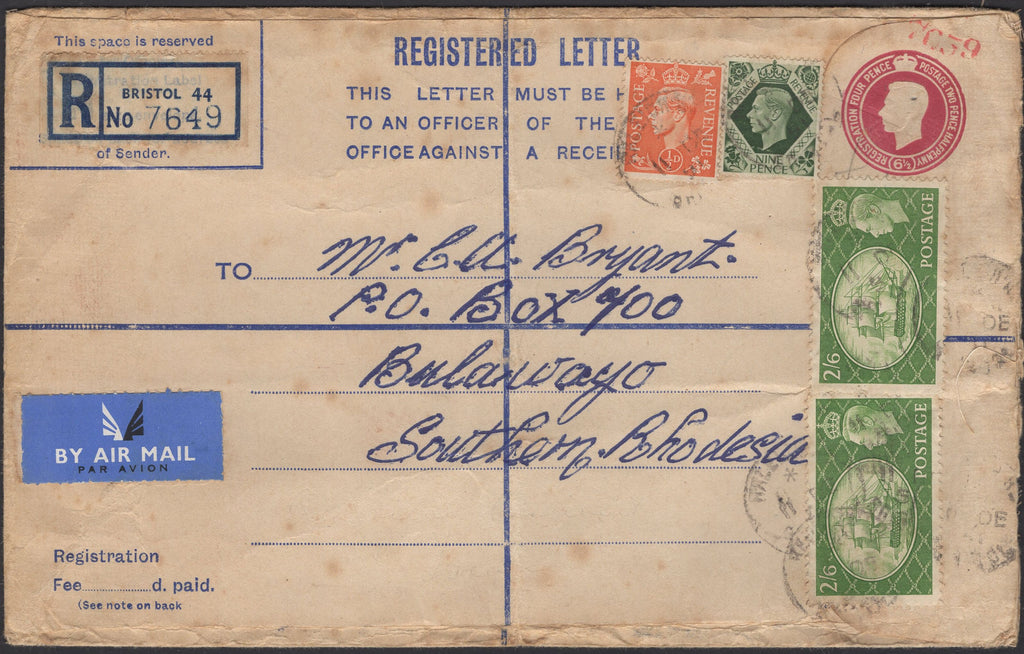 This space is reserved
R
BRISTOL 44
No 7649
of Sender.
REGISTERED LETTER
THIS LETTER MUST BE
TO AN OFFICER OF THE
OFFICE AGAINST A
POSTAGE
REVENUE
½D
POSTAGE
REVENUE
NINE
PENCE
7059
REGISTRATION FOUR PENCE
POSTAGE TWO PENCE HALFPENNY
6½
TO
Mr. C.A. Bryant.
P.O. Box 700
Bulawayo
Southern Rhodesia
POSTAGE
2/6
POSTAGE
2/6
BY AIR MAIL
PAR AVION
Registration
Fee d. paid.
(See note on back